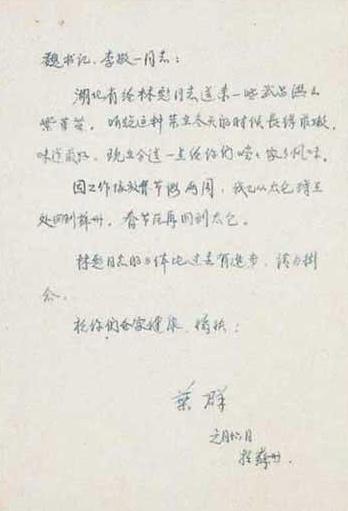 魏书记、李敏一同志：
湖北有给林彪同志送来一些武昌洪山
紫菜苔。听说这种菜在冬天的时候长得最嫩，
味道最好。现在分送一点给你们尝尝家乡风味。
因工作 春节 两周，我已从太仓
处回到苏州。春节后再回到太仓。
林彪同志的身体比过去有进步，请勿掛
念。
祝你们全家健康、愉快！
葉群
元月十六日
於苏州.